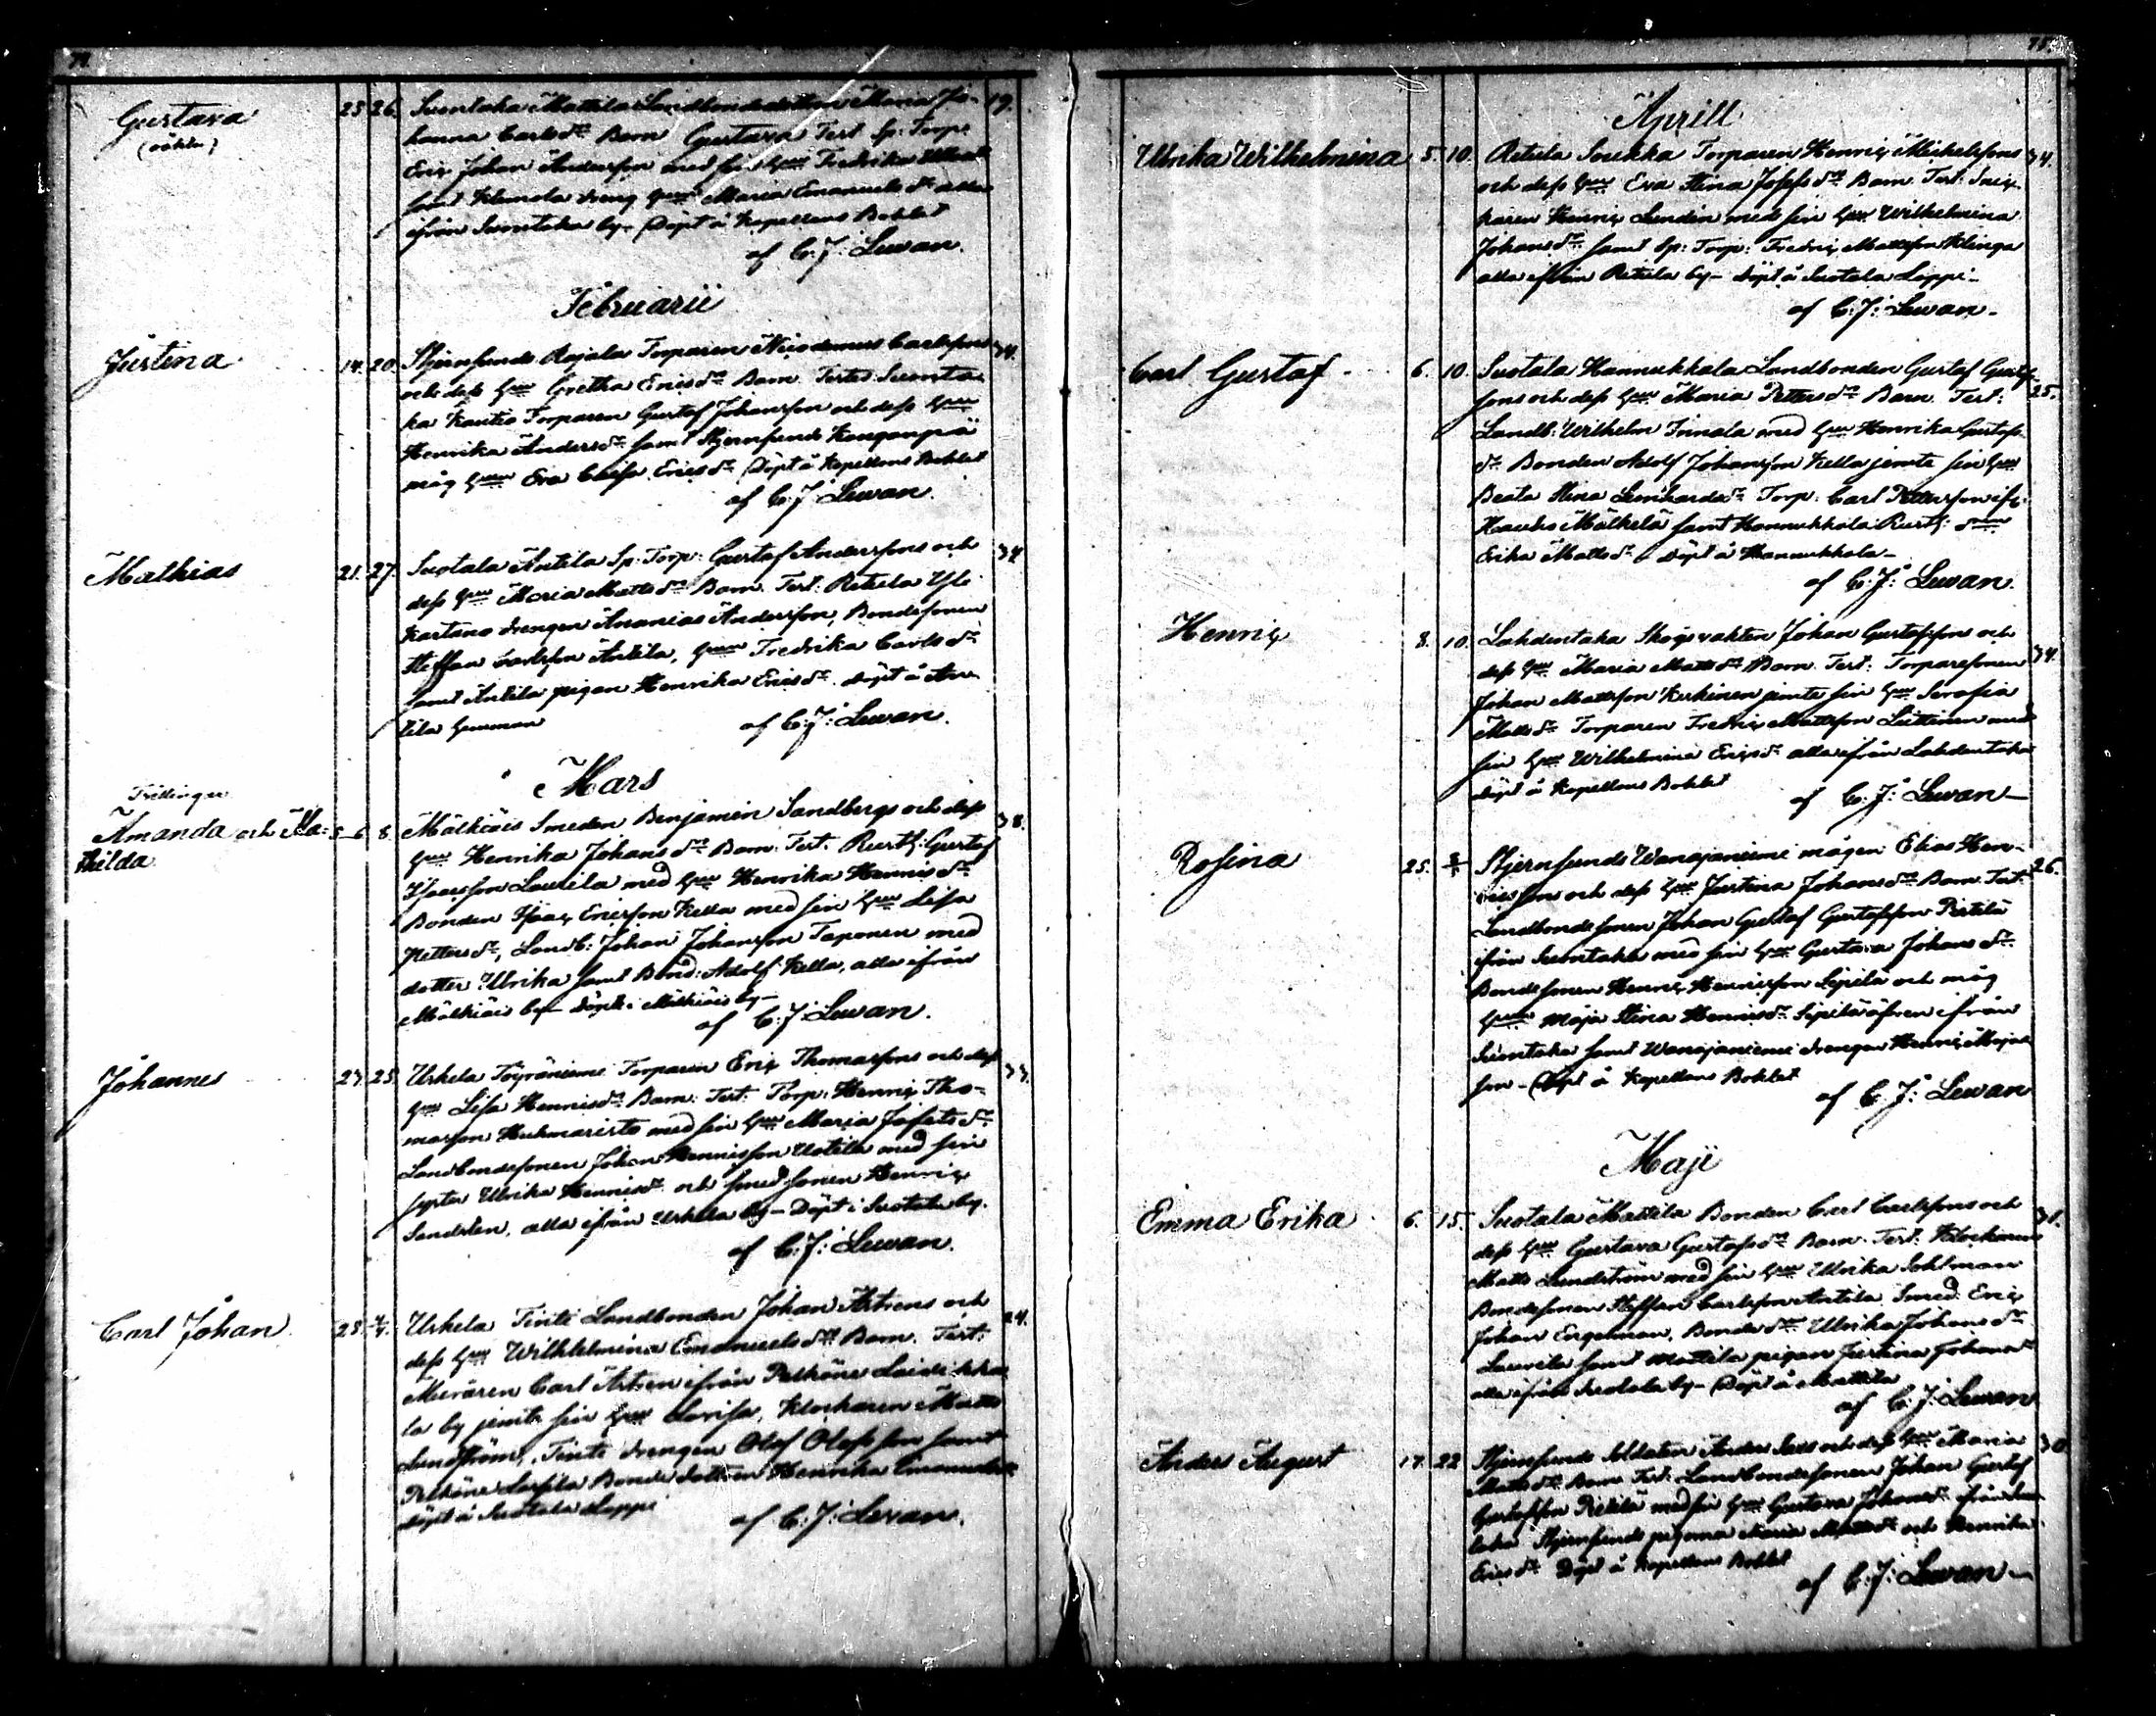 74.
Gustava
(oäkta)
23 26. Suontaka Mattila Landbondedottern Maria Jo- 19.
hanna Carls dr Barn Gustava Test Sp: Torp:
Eric Johan Andersson med sin hru Fredrika
samt Klemola dreng hru Maria Emanuels dr alla
ifrån Suontaka by – Döpt å Kapellans Bohlet
af C. J. Lewan.
Februarii
Justina 14. 20. Stjernsunds Rajala Torparen Nicodemus Carlssons 34.
och dess hru Gretha Erics dr Barn. Testes Suonta-
ka Kautio Torparen Gustaf Johansson och dess hru
Henrika Anders dr samt Stjernsunds Kanganpää
måg hru Eva Caisa Erics dr Döpt å Kapellans Bohlet
af C. J. Lewan.
Mathias 21. 27. Suotala Antila Sp. Torp: Gustaf Anderssons och 34
dess hru Maria Matts dr Barn. Test: Retula Yli
Kartano drengen Ananias Andersson, Bondesonen
Steffan Carlsson Antila, hru Fredrika Carls dr
samt Antila pigan Henrika Erics dr döpt å An-
tila hemman af C: J: Lewan.
Mars
Trillingar
Amanda och Ma-
thilda
5–6. 8. Mälkiäis Smeden Benjamin Sandbergs och dess 38.
hru Henrika Johans dr Barn. Test. Rusth: Gustaf
Isacsson Laurila med hru Henrika Henrics dr
Bonden Isaac Ericsson Kella med sin hru Lisa
Petters dr, Landb: Johan Johansson Taponen med
dotter Ulrika samt Bond: Adolf Kella, alla ifrån
Mälkiäis by – Döpt i Mälkiäis by –
af C. J. Lewan.
Johannes 23. 25. Urhela Töyräniemi Torparen Eric Thomassons och dess 33.
hru Lisa Henrics dr Barn. Test. Torp: Henric Tho-
masson Huhmaristo med sin hru Maria Josefs dr
Landbondesonen Johan Henricsson Uotila med sin
syster Ulrika Henrics dr och smed sonen Henric
Sandsten, alla ifrån Urhela by – Döpt i Suotala by.
af C: J: Lewan.
Carl Johan. 28. 2/4. Urhela Tinti Landbonden Johan Artrens och 24.
dess hru Wilhelmina Emanuels dr Barn. Test:
Muraren Carl Artren ifrån Pelkäne Laidikka-
la by jemte sin hru Lovisa, Klockaren Matts
Lundström, Tinti drengen Olof Olofsson samt
Pelkäne Bonde dottren Henrika Emanuels dr
döpt å Suotala Loppi
af C. J. Lewan.
75.
Aprill
Ulrika Wilhelmina 5. 10. Retula Soukka Torparen Henric Michelssons 34.
och dess hru Eva Stina Josefs dr Barn. Test:
Henric Lundin med sin hru Wilhelmina
Johans dr samt Sp: Torp: Fredric Mattsson Klinga
alla ifrån Retula by – döpt å Suotala Loppi –
af C: J: Lewan –
Carl Gustaf 6. 10. Suotala Hannukkala Landbonden Gustaf Gustaf-
sons och dess hru Maria Petters dr Barn. Test: 25.
Landb: Wilhelm med hru Henrika Gustafs
dr Bonden Adolf Johansson Kella jemte sin hru
Beata Stina Leonhards dr Torp. Carl Pettersson ifr:
Hauho Mälkelä samt Hannukkala Rusth:
Erika Matts dr Döpt å Hannukkala –
af C. J: Lewan.
Henric 8. 10. Lahdentaka Skogsvakten Johan Gustafssons och
dess hru Maria Matts dr Barn. Test: Torparesonen 34.
Johan Mattsson Keskinen jemte sin hru Serafia
Matts dr Torparen Fredric Mattsson med
sin hru Wilhelmina Erics dr alla ifrån Lahdentaka
döpt å Kapellans Bohlet
af C: J: Lewan –
Rosina 25. 2/5 Stjernsunds Wanajaniemi mågen Elias Hen-
ricsson och dess hru Justina Johans dr Barn. Test: 26.
Landbondesonen Johan Gustaf Gustafsson Pirtilä
ifrån Suontaka med sin hru Gustava Johans dr
Bondesonen Henric Henricsson Sipilä och måg
hru Maja Stina Henrics dr Sipilä äfven ifrån
Suontaka samt Wanajaniemi drengen Henric
son – Döpt å Kapellans Bohlet
af C. J: Lewan
Maji
Emma Erika 6. 15. Suotala Mattila Bonden Carl Carlssons och 31.
dess hru Gustava Gustafs dr Barn. Test: Klockaren
Matts Lundström med sin hru Ulrika Sohlman
Bondesonen Steffan Carlsson Antila Smed. Eric
Johan Engelman, Bonde dr Ulrika Johans dr
Laurila samt Mattila pigan Justina Johans dr
alla ifrån Suotala by – Döpt å Mattila
af C. J. Lewan
Anders August 17. 22 Stjernsunds Soldaten Anders och dess hru Maria 30
Matts dr Barn Test: Landbondesonen Johan Gustaf
Gustafsson Pirtilä med sin hru Gustava Johans dr ifrån Suon-
taka Stjernsunds pigorna Maria Matts dr och Henrika
Erics dr Döpt å Kapellans Bohlet
af C: J: Lewan –